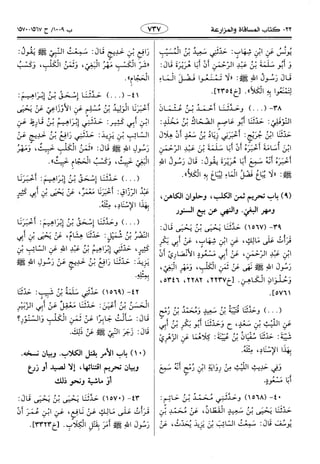 ٢٢- كتاب المساقاة والمزارعة
٧٣٧
ب ١٠٠٩/ ح ١٥٦٧-١٥٧٠
يُونُسُ عَنِ ابْنِ شِهَابٍ: حَدَّثَنِي سَعِيدُ بْنُ الْمُسَيَّبِ
وَأَبُو سَلَمَةَ بْنُ عَبْدِ الرَّحْمَنِ أَنَّ أَبَا هُرَيْرَةَ قَالَ:
قَالَ رَسُولُ اللهِ ﷺ: «لَا تَمْنَعُوا فَضْلَ الْمَاءِ
لِتَمْنَعُوا بِهِ الْكَلَأَ». [خ٢٣٥٤].
٣٨- (...) وحَدَّثَنَا أَحْمَدُ بْنُ عُثْمَانَ
النَّوْفَلِيُّ: حَدَّثَنَا أَبُو عَاصِمٍ الضَّحَّاكُ بْنُ مَخْلَدٍ:
حَدَّثَنَا ابْنُ جُرَيْجٍ: أَخْبَرَنِي زِيَادُ بْنُ سَعْدٍ أَنَّ هِلَالَ
ابْنَ أُسَامَةَ أَخْبَرَهُ أَنَّ أَبَا سَلَمَةَ بْنَ عَبْدِ الرَّحْمَنِ
أَخْبَرَهُ أَنَّهُ سَمِعَ أَبَا هُرَيْرَةَ يَقُولُ: قَالَ رَسُولُ اللهِ
ﷺ: «لَا يُبَاعُ فَضْلُ الْمَاءِ لِيُبَاعَ بِهِ الْكَلَأُ».
(٩) باب تحريم ثمن الكلب، وحلوان الكاهن،
ومهر البغي، والنهي عن بيع السنور
٣٩- (١٥٦٧) حَدَّثَنَا يَحْيَى بْنُ يَحْيَى قَالَ:
قَرَأْتُ عَلَى مَالِكٍ، عَنِ ابْنِ شِهَابٍ، عَنْ أَبِي بَكْرِ
ابْنِ عَبْدِ الرَّحْمَنِ، عَنْ أَبِي مَسْعُودٍ الْأَنْصَارِيِّ أَنَّ
رَسُولَ اللهِ ﷺ نَهَى عَنْ ثَمَنِ الْكَلْبِ، وَمَهْرِ الْبَغِيِّ،
وَحُلْوَانِ الْكَاهِنِ. [خ٢٢٣٧، ٢٢٨٢، ٥٣٤٦،
٥٧٦١].
(...) وحَدَّثَنَا قُتَيْبَةُ بْنُ سَعِيدٍ وَمُحَمَّدُ بْنُ رُمْحٍ
عَنِ اللَّيْثِ بْنِ سَعْدٍ، ح وَحَدَّثَنَا أَبُو بَكْرِ بْنُ أَبِي
شَيْبَةَ: حَدَّثَنَا سُفْيَانُ بْنُ عُيَيْنَةَ: كِلَاهُمَا عَنِ الزُّهْرِيِّ
بِهَذَا الْإِسْنَادِ، مِثْلَهُ.
وَفِي حَدِيثِ اللَّيْثِ مِنْ رِوَايَةِ ابْنِ رُمْحٍ أَنَّهُ سَمِعَ
أَبَا مَسْعُودٍ.
٤٠- (١٥٦٨) وحَدَّثَنِي مُحَمَّدُ بْنُ حَاتِمٍ:
حَدَّثَنَا يَحْيَى بْنُ سَعِيدٍ الْقَطَّانُ، عَنْ مُحَمَّدِ بْنِ
يُوسُفَ قَالَ: سَمِعْتُ السَّائِبَ بْنَ يَزِيدَ يُحَدِّثُ، عَنْ
رَافِعِ بْنِ خَدِيجٍ قَالَ: سَمِعْتُ النَّبِيَّ ﷺ يَقُولُ:
«شَرُّ الْكَسْبِ مَهْرُ الْبَغِيِّ، وَثَمَنُ الْكَلْبِ، وَكَسْبُ
الْحَجَّامِ».
(...) حَدَّثَنَا إِسْحَقُ بْنُ إِبْرَاهِيمَ:
أَخْبَرَنَا الْوَلِيدُ بْنُ مُسْلِمٍ عَنِ الْأَوْزَاعِيِّ عَنْ يَحْيَى
ابْنِ أَبِي كَثِيرٍ: حَدَّثَنِي إِبْرَاهِيمُ بْنُ قَارِظٍ عَنِ
السَّائِبِ بْنِ يَزِيدَ: حَدَّثَنِي رَافِعُ بْنُ خَدِيجٍ عَنْ
رَسُولِ اللهِ ﷺ قَالَ: «ثَمَنُ الْكَلْبِ خَبِيثٌ، وَمَهْرُ
الْبَغِيِّ خَبِيثٌ، وَكَسْبُ الْحَجَّامِ خَبِيثٌ».
(...) حَدَّثَنَا إِسْحَقُ بْنُ إِبْرَاهِيمَ: أَخْبَرَنَا
عَبْدُ الرَّزَّاقِ: أَخْبَرَنَا مَعْمَرٌ، عَنْ يَحْيَى بْنِ أَبِي كَثِيرٍ
بِهَذَا الْإِسْنَادِ، مِثْلَهُ.
(...) وحَدَّثَنَا إِسْحَقُ بْنُ إِبْرَاهِيمَ: أَخْبَرَنَا
النَّضْرُ بْنُ شُمَيْلٍ: حَدَّثَنَا هِشَامٌ، عَنْ يَحْيَى بْنِ أَبِي
كَثِيرٍ، حَدَّثَنِي إِبْرَاهِيمُ بْنُ عَبْدِ اللهِ عَنِ السَّائِبِ بْنِ
يَزِيدَ: حَدَّثَنَا رَافِعُ بْنُ خَدِيجٍ عَنْ رَسُولِ اللهِ ﷺ
بِمِثْلِهِ.
٤٢- (١٥٦٩) حَدَّثَنِي سَلَمَةُ بْنُ شَبِيبٍ: حَدَّثَنَا
الْحَسَنُ بْنُ أَعْيَنَ: حَدَّثَنَا مَعْقِلٌ عَنْ أَبِي الزُّبَيْرِ
قَالَ: سَأَلْتُ جَابِرًا عَنْ ثَمَنِ الْكَلْبِ وَالسِّنَّوْرِ؟
قَالَ: زَجَرَ النَّبِيُّ ﷺ عَنْ ذَلِكَ.
(١٠) باب الأمر بقتل الكلاب. وبيان نسخه.
وبيان تحريم اقتنائها، إلا لصيد أو زرع
أو ماشية ونحو ذلك
٤٣- (١٥٧٠) حَدَّثَنَا يَحْيَى بْنُ يَحْيَى قَالَ:
قَرَأْتُ عَلَى مَالِكٍ، عَنْ نَافِعٍ، عَنِ ابْنِ عُمَرَ أَنَّ
رَسُولَ اللهِ ﷺ أَمَرَ بِقَتْلِ الْكِلَابِ. [خ٣٣٢٣].